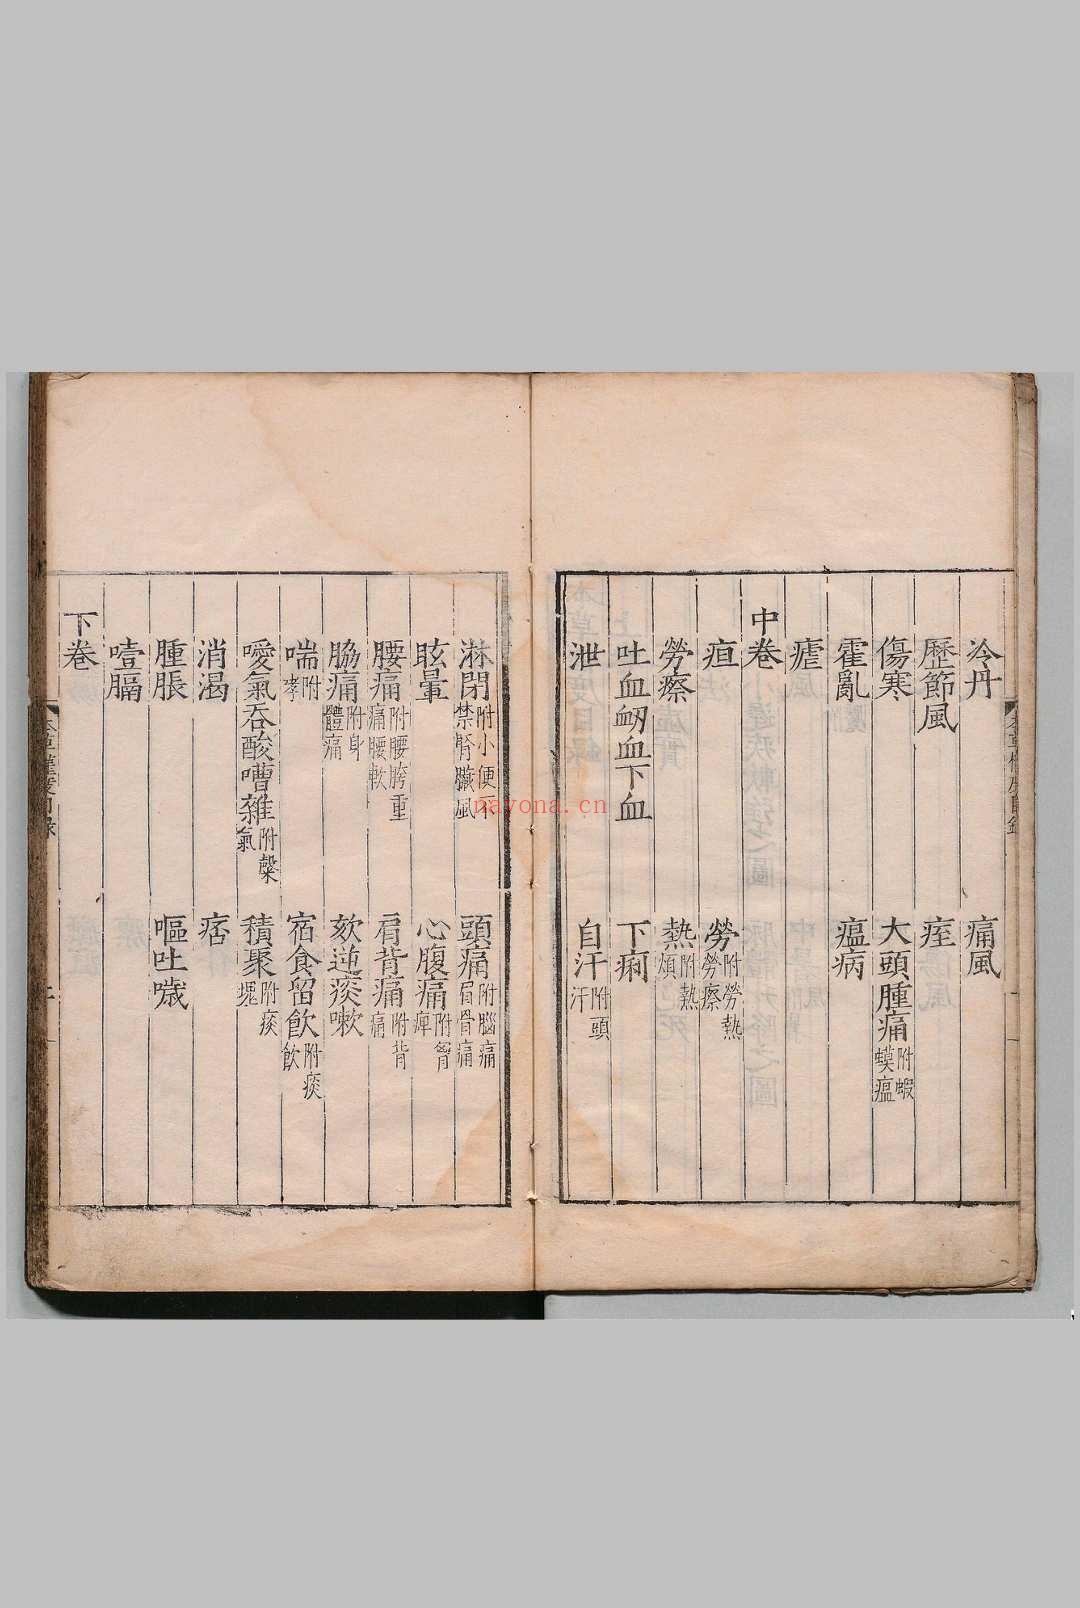 冷丹　痛風
歷節風　痓
傷寒　大頭腫痛附蝦蟆瘟
霍亂　瘟病
瘧
中卷
疸　勞附勞熱勞瘵
勞瘵　熱附熱煩
吐血衂血下血　下痢
泄　自汗附頭汗
淋閉附小便不禁腎臟風　頭痛附腦痛眉骨痛
眩暈　心腹痛附胷痺
腰痛附腰胯重痛腰軟　肩背痛附背痛
脇痛附身體痛　欬逆痰嗽
喘附哮　宿食留飲附痰飲
噯氣吞酸嘈雜附檗氣　積聚附痰
消渴　痞
腫脹　嘔吐噦
噎膈
下卷
nayona.cn